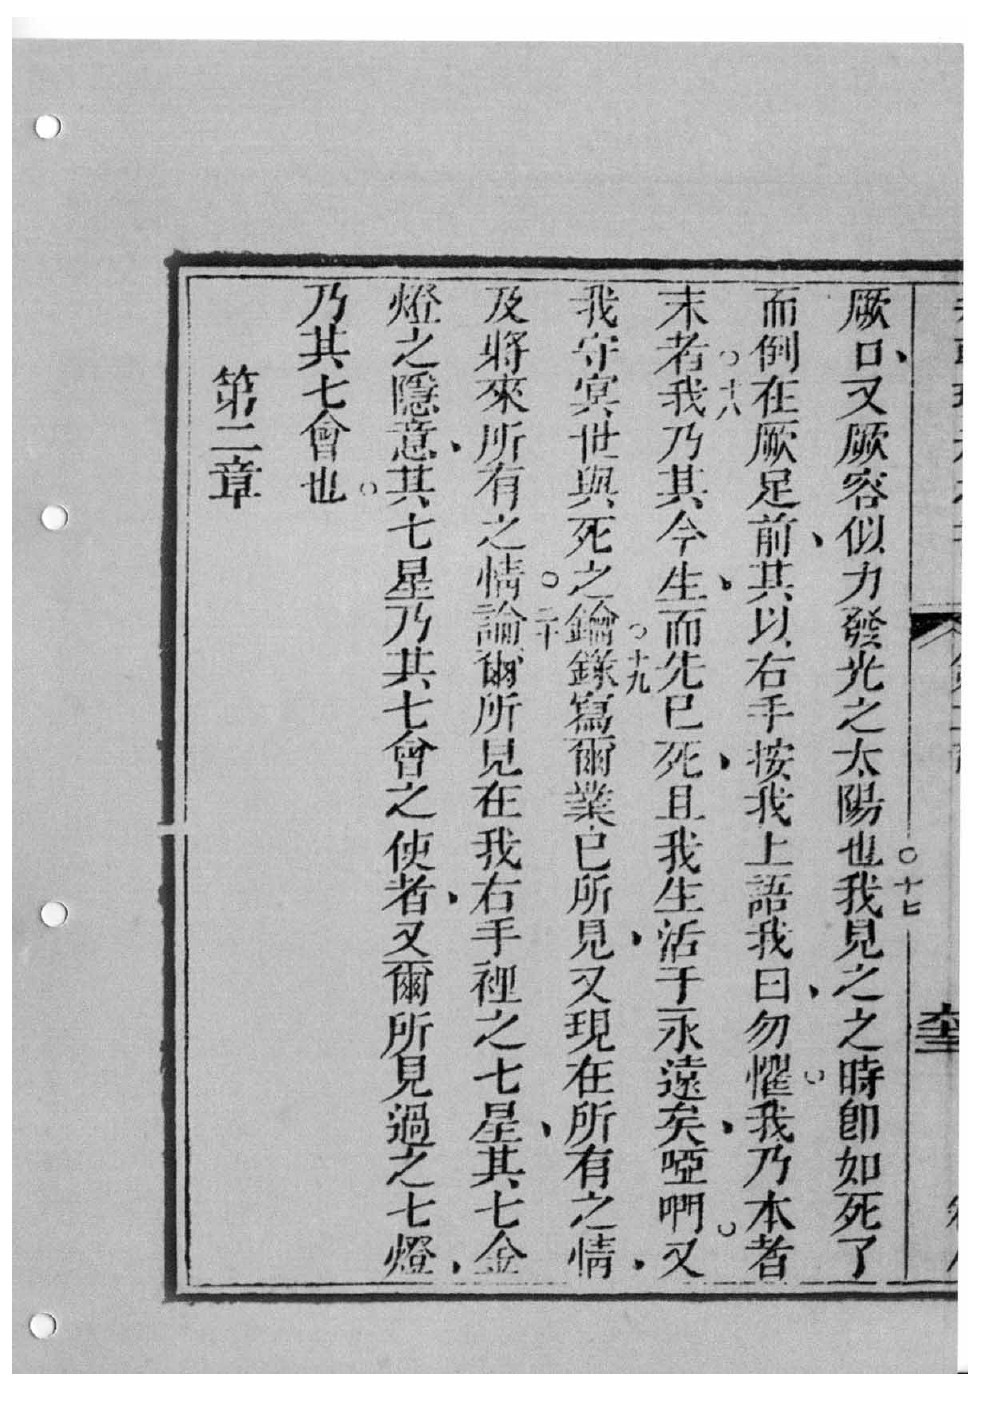 厥口、又厥容似力發光之太陽也。十七我見之之時卽如死了
而倒在厥足前、其以右手按我上語我曰、勿懼。我乃本者
末者。十八我乃其今生、而先已死、且我生活于永遠矣、啞㘔。又
我守㝠世與死之鑰。十九錄寫爾業已所見、又現在所有之情、
及將來所有之情。二十論爾所見在我右手裡之七星、其七金
燈之隱意、其七星乃其七會之使者、又爾所見過之七燈、
乃其七會也。
第二章